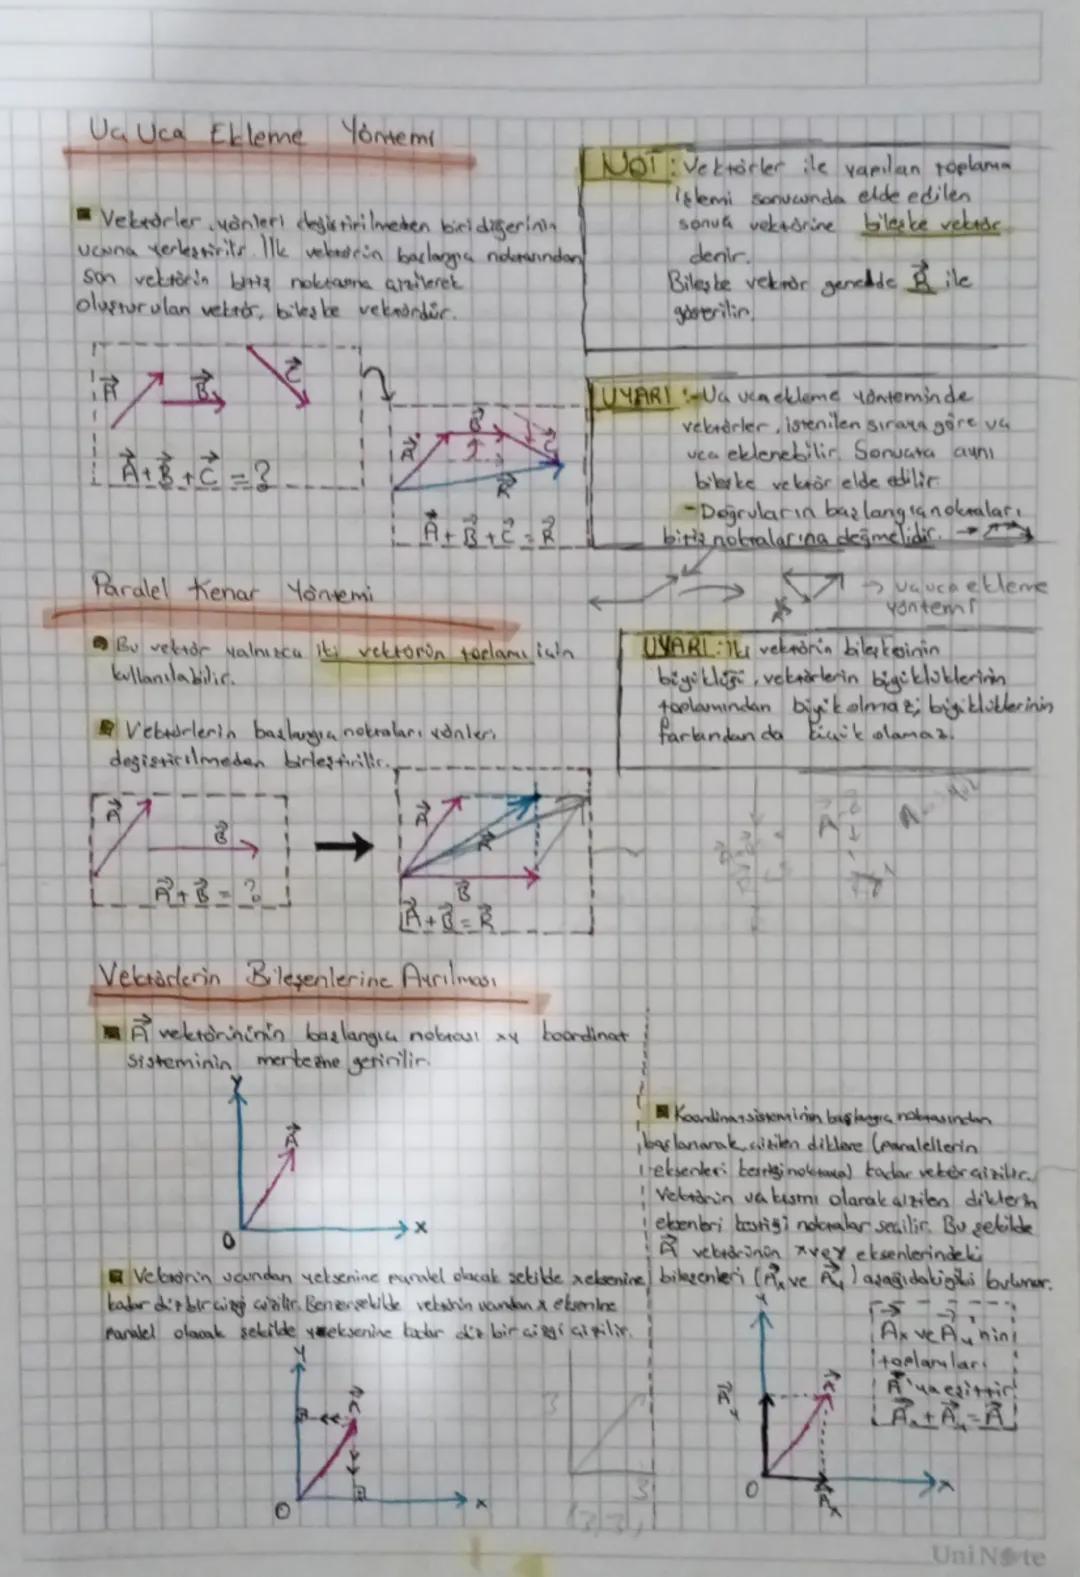 Uç Uca Ekleme Yöntemi
Vektörler, yönleri değiştirilmeden biri diğerinin
ucuna yerleştirilir. İlk vektörün başlangıç noktasından
son vektörün bitiş noktasına çizilerek
oluşturulan vektör, bileşke vektördür.
A B C
A + B + C = ?
A B C R
A + B + C = R
NOT: Vektörler ile yapılan toplama
işlemi sonucunda elde edilen
sonuç vektörüne bileşke vektör
denir.
Bileşke vektör genelde R ile
gösterilir.
UYARI :-Uç uca ekleme yönteminde
vektörler, istenilen sıraya göre uç
uca eklenebilir. Sonuçta aynı
bileşke vektör elde edilir.
-Doğruların başlangıç noktaları
bitiş noktalarına değmelidir. →
→ uç uca ekleme
yöntemi
Paralel Kenar Yöntemi
Bu vektör yalnızca iki vektörün toplamı için
kullanılabilir.
Vektörlerin başlangıç noktaları yönleri
değiştirilmeden birleştirilir.
A B
A + B = ?
A R B
A + B = R
UYARI: İki vektörün bileşkesinin
büyüklüğü, vektörlerin büyüklüklerinin
toplamından büyük olmaz; büyüklüklerinin
farkından da küçük olamaz.
Vektörlerin Bileşenlerine Ayrılması
A vektörününün başlangıç noktası xy koordinat
sisteminin merkezine getirilir.
y
A
O x
Vektörün ucundan y eksenine paralel olacak şekilde x eksenine
kadar düz bir çizgi çizilir. Benzer şekilde vektörün ucundan x eksenine
paralel olacak şekilde y eksenine kadar düz bir çizgi çizilir.
y
A
O x
3
3
(3,3)
Koordinat sisteminin başlangıç noktasından
başlanarak, çizilen diklere (paralellerin
eksenleri kestiği noktaya) kadar vektör çizilir.
Vektörün uç kısmı olarak çizilen diklerin
eksenleri kestiği noktalar seçilir. Bu şekilde
A vektörünün x ve y eksenlerindeki
bileşenleri (Ax ve Ay) aşağıdaki gibi bulunur.
y
Ay A
O Ax x
Ax ve Ay'nin
toplamları
A'ya eşittir.
Ax + Ay = A
UniNote